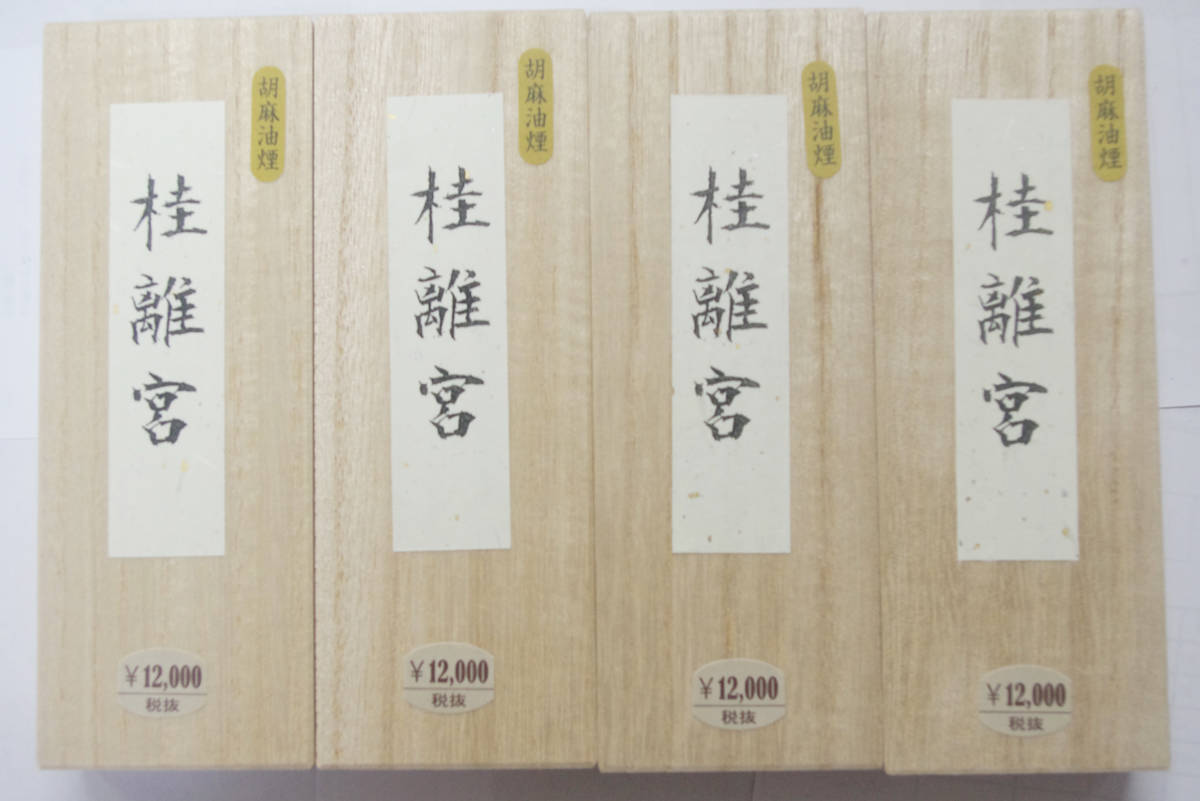 胡麻油煙
桂離宮
￥12,000
税抜
胡麻油煙
桂離宮
￥12,000
税抜
胡麻油煙
桂離宮
￥12,000
税抜
胡麻油煙
桂離宮
￥12,000
税抜